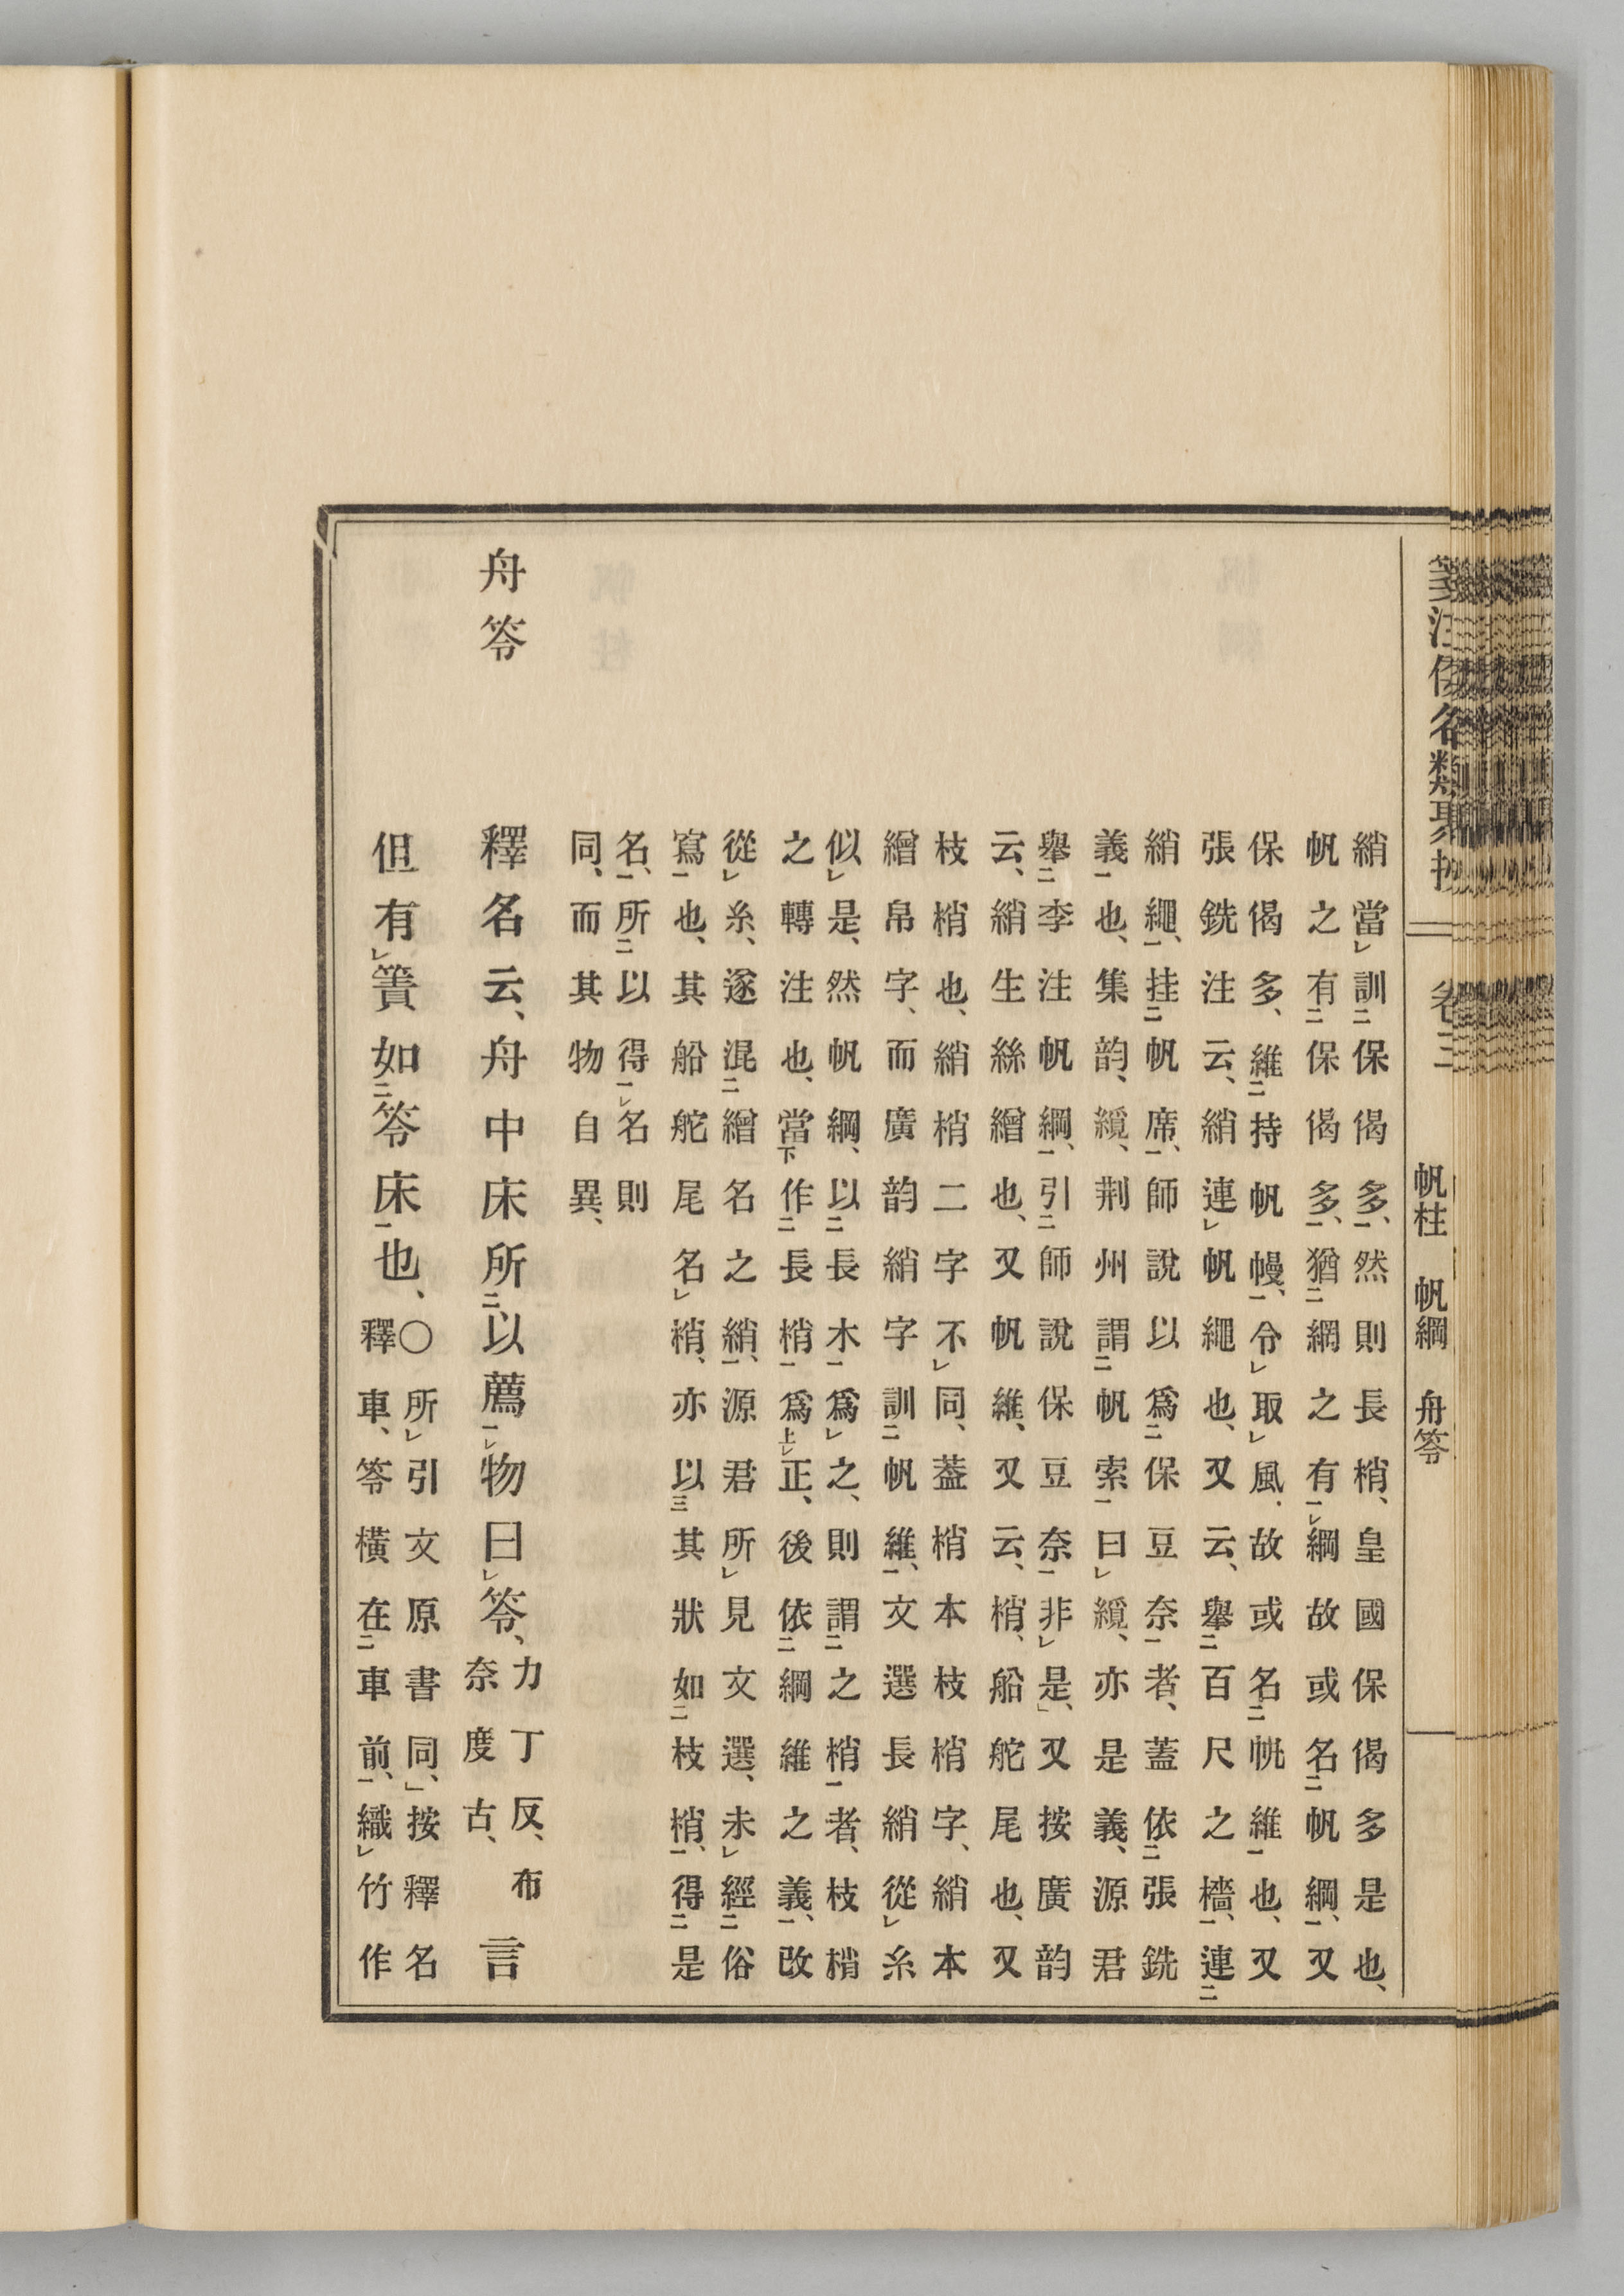 箋注倭名類聚抄 卷三 帆柱 帆綱 舟笭
綃當訓保偈多、然則長梢、皇國保偈多是也、
帆之有保偈多、猶網之有綱故或名帆綱、又
保偈多、維持帆幔、令取風、故或名維也、又
張銑注云、綃連帆繩也、又云、舉百尺之檣、連
綃繩、挂帆席、師說以爲保豆奈者、蓋依張銑
義也、集韵、荆州謂帆索曰、亦是義、源君
舉李注帆綱、引師說保豆奈非是、又按廣韵
云、綃生絲繒也、又帆維、又云、梢、船舵尾也、又
枝梢也、綃梢二字不同、蓋梢本枝梢字、綃本
繒帛字、而廣韵綃字訓帆維、文選長綃從糸
似是、然帆綱、以長木爲之、則謂之梢者、枝梢
之轉注也、當作長梢爲正、後依綱維之義、改
從糸、遂混繒名之綃、源君所見文選、未經俗
寫也、其船舵尾名梢、亦以其狀如枝梢、得是
名、所以得名則
同、而其物自異、
舟笭 釋名云、舟中床所以薦物曰笭、力丁反、布奈度古、言
但有簀如笭床也、〇所引文原書同、按釋名
釋車、笭橫在車前、織竹作